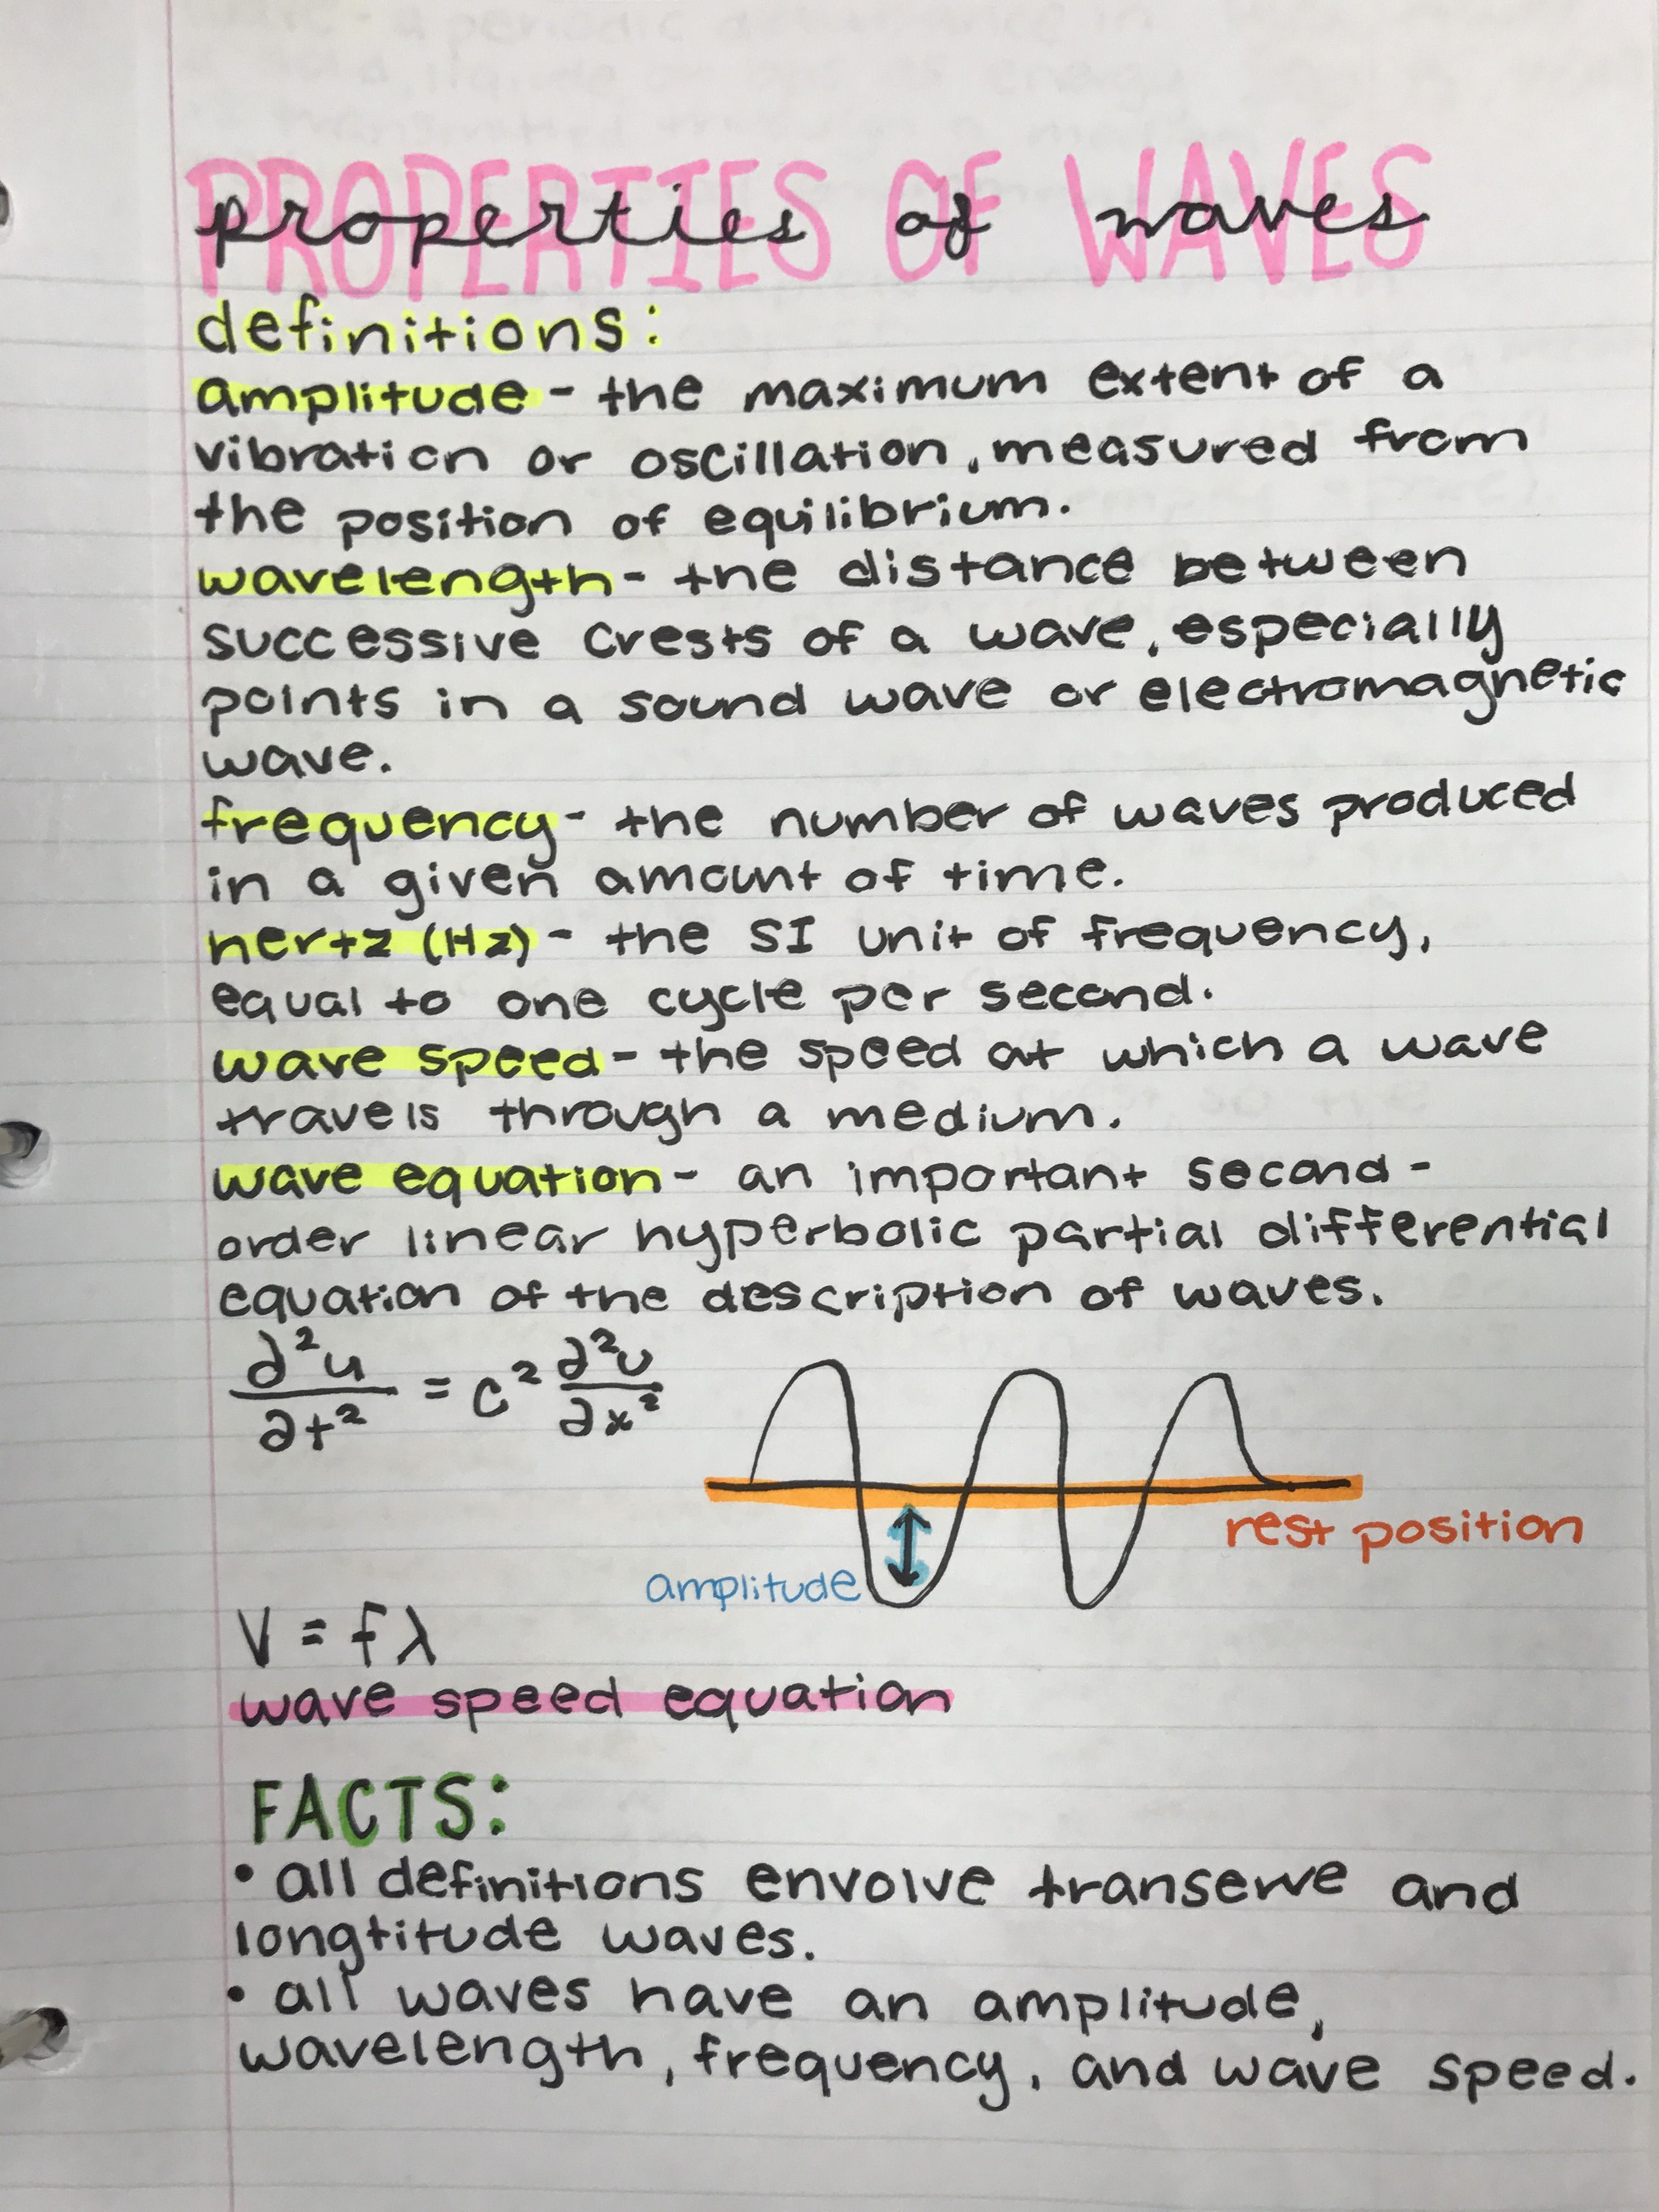 PROPERTIES OF WAVES
properties of waves
definitions:
amplitude - the maximum extent of a
vibration or oscillation, measured from
the position of equilibrium.
wavelength - the distance between
successive crests of a wave, especially
points in a sound wave or electromagnetic
wave.
frequency - the number of waves produced
in a given amount of time.
hertz (Hz) - the SI unit of frequency,
equal to one cycle per second.
wave speed - the speed at which a wave
travels through a medium.
wave equation - an important second-
order linear hyperbolic partial differential
equation of the description of waves.
∂²u/∂t² = c² ∂²u/∂x²
rest position
amplitude
V = fλ
wave speed equation
FACTS:
• all definitions envolve transerve and
longtitude waves.
• all waves have an amplitude,
wavelength, frequency, and wave speed.